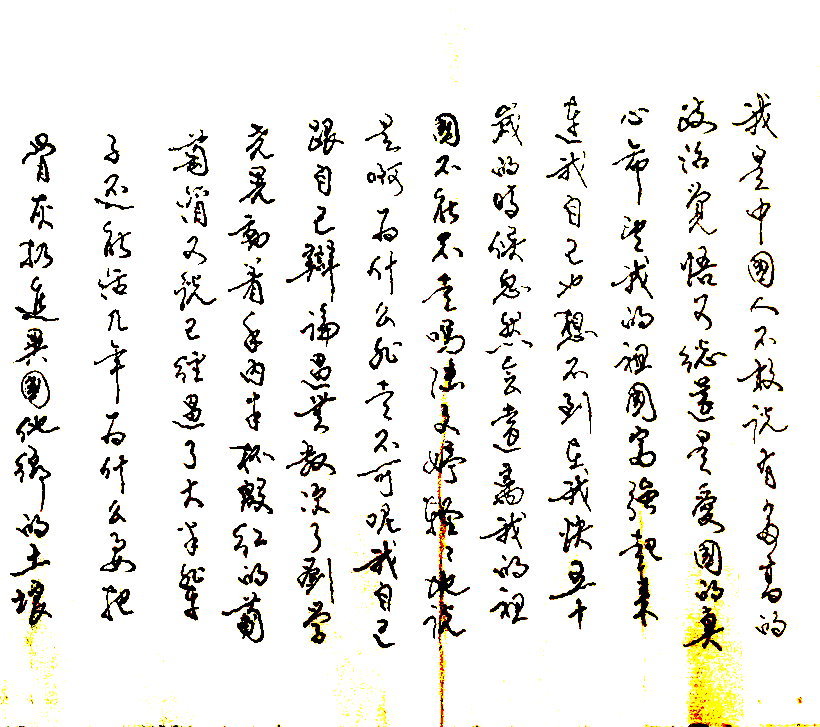 我是中国人不敢说有多高的
政治觉悟又总还是爱国的真
心希望我的祖国富强起来
连我自己也想不到在我快五十
岁的时候忽然会远离我的祖
国不能不走吗陆文婷轻轻地说
是啊为什么非走不可呢我自己
跟自己辩论过无数次了刘学
尧晃动着手内半杯殷红的葡
萄酒又说已经过了大半辈
子还能活几年为什么要把
骨灰扔进异国他乡的土壤